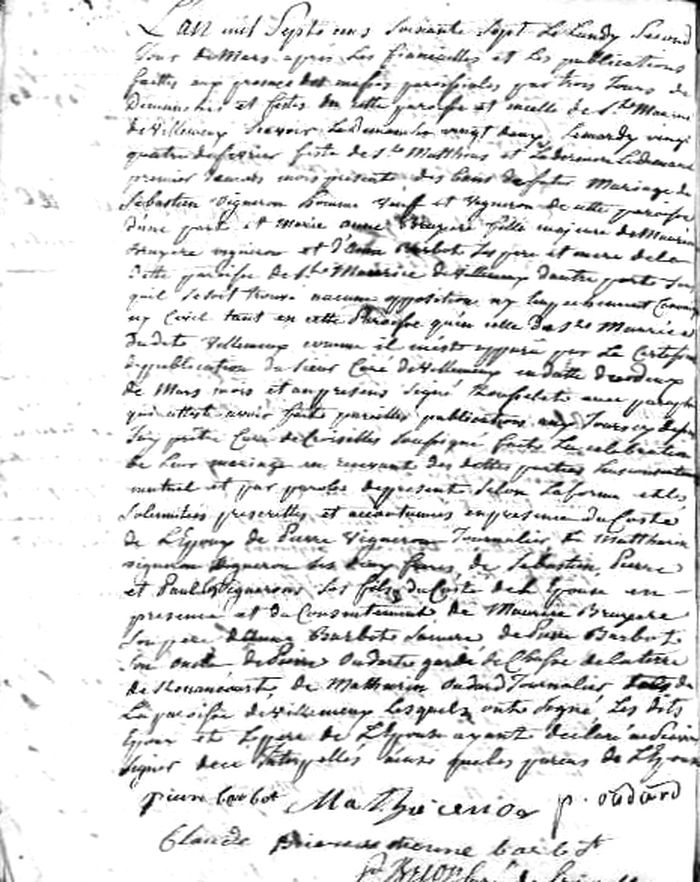 L'an mil Sept cens Soixante Sept Le Lundy Second
Jour de Mars apres Les fiancailles et Les publications
faittes aux prosnes des messes paroissiales par trois Jours de
Dimanches et festes en cette paroisse et en celle de St Maurice
de villemeux Scavoir Le dimanche vingt deux, Le mardy vingt
quatre de fevrier feste de St Matthias et Le dernier Le dimanche
premier mois present des bans du futur Mariage de
Sebastien Vigneron homme veuff et vigneron de cette paroisse
d'une part et Marie Anne Bruyere fille majeure de Maurice
Bruyere vigneron et d'Anne Barbot Ses pere et mere de la
ditte paroisse de St Maurice de villemeux d'autre part Sans
qu'il Se soit trouvé aucune opposition ny Empechement Canon
ny Civil tant en cette Paroisse qu'en celle de St Maurice
dudit villemeux comme il m'est apparu par Le Certificat
de publication du Sieur Curé de villemeux en datte du deux
de Mars mois et an presens Signé avec paraphe
qui atteste avoir fait pareilles publications aux Jours cy dessus
Je pretre Curé de Croisilles Soussigné La celebration
de Leur mariage en recevant des dittes parties Leur consentement
mutuel et par paroles de present Selon La forme et Les
Solemnités prescrittes et accoutumées en presence du Costé
de L'Epoux de Pierre Vigneron Journalier de Matthurin
vigneron Vigneron Ses deux freres de Sebastien, Pierre
et Paul Vignerons Ses fils, du Costé de L'Epouse en
presence et du Consentement de Maurice Bruyere
Son pere d'Anne Barbot Sa mere de Pierre Barbot
Son oncle de Pierre Oudard garde de Chasse de La terre
de Renancourt, de Mathurin Oudard Journalier, tous de
La paroisse de villemeux Lesquels ont Signé Les dits
Epoux et Le pere de L'Epouse ayant declaré ne Scavoir
Signer de ce Interpellés ainsi que Les parens de L'Epoux
pierre barbot Mathurin p. oudard
Claude etienne barbot
Brion Curé de